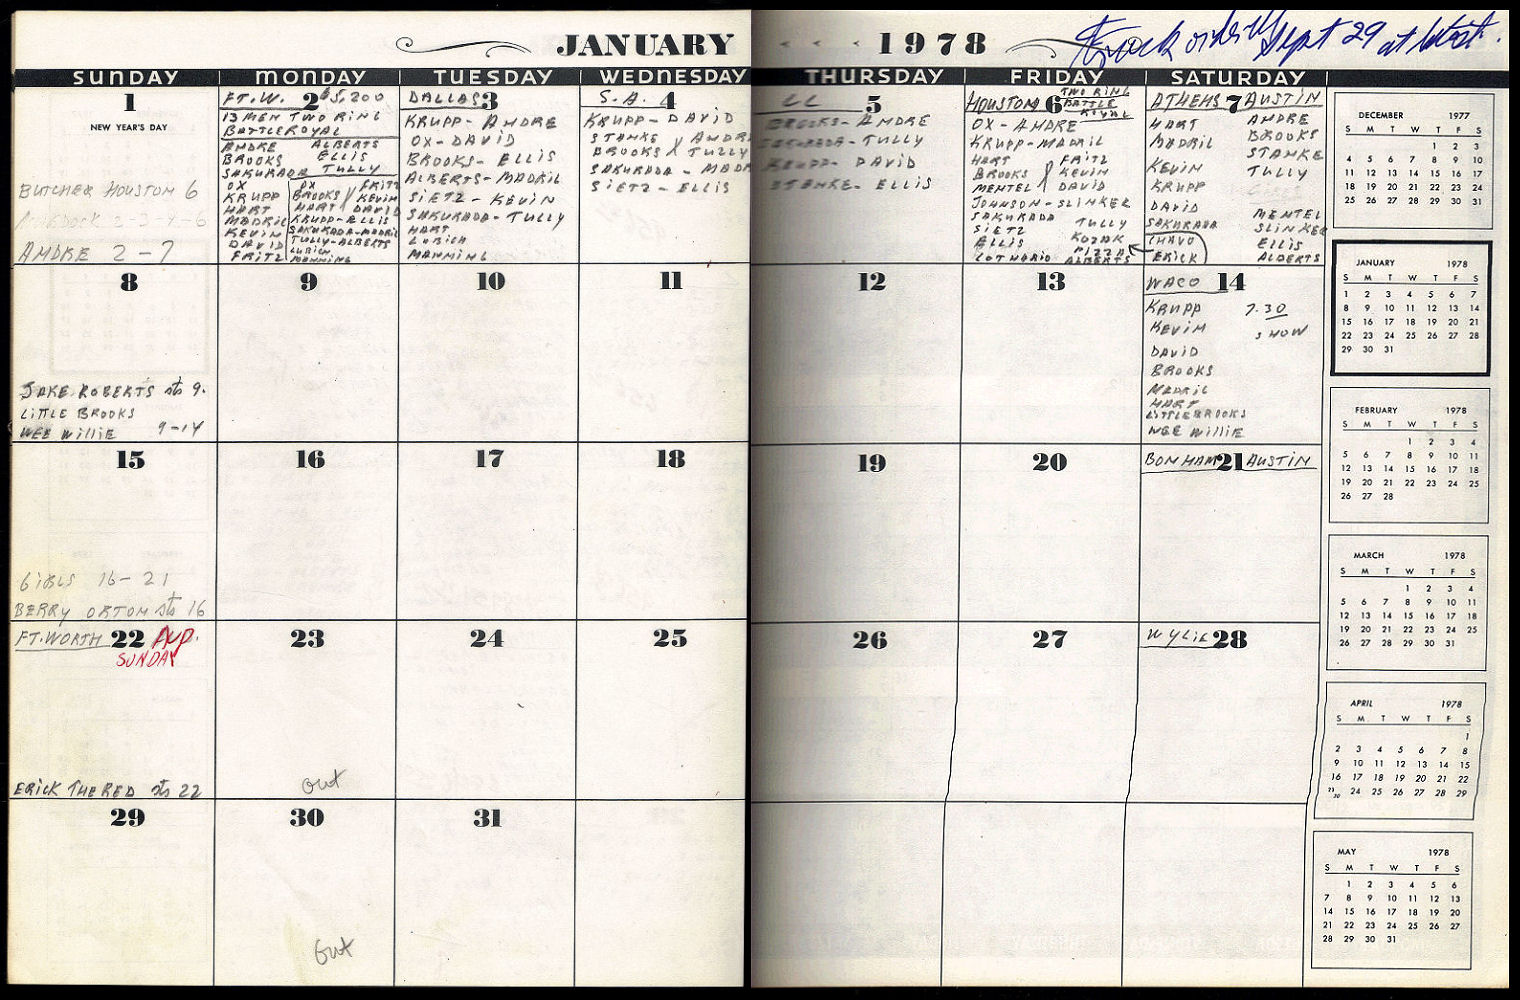 JANUARY 1978
Sept 29 at
SUNDAY MONDAY TUESDAY WEDNESDAY THURSDAY FRIDAY SATURDAY
1
NEW YEAR'S DAY
BUTCHER HOUSTON 6
2-3-4-6
ANDRE 2-7
FT.W. 2 $5,200
13 MEN TWO RING
BATTLE ROYAL
ANDRE ALBERTS
BROOKS ELLIS
SAKURADA TULLY
OX
KRUPP
HART
MADRIL
KEVIN
DAVID
FRITZ
OX FRITZ
BROOKS KEVIN
HART DAVID
KRUPP-ELLIS
SAKURADA-MADRIL
TULLY-ALBERTS
LUBICH
MANNING
DALLAS 3
KRUPP-ANDRE
OX-DAVID
BROOKS-ELLIS
ALBERTS-MADRIL
SIETZ-KEVIN
SAKURADA-TULLY
HART
LUBICH
MANNING
S.A. 4
KRUPP-DAVID
STANKE ANDRE
BROOKS TULLY
SAKURADA-MADR
SIETZ-ELLIS
CC 5
BROOKS-ANDRE
SAKURADA-TULLY
KRUPP-DAVID
STANKE-ELLIS
HOUSTON 6 TWO RING
BATTLE
ROYAL
OX-ANDRE
KRUPP-MADRIL
HART FRITZ
BROOKS KEVIN
MENTEL DAVID
JOHNSON-SLINKER
SAKURADA TULLY
SIETZ KOZAK
ELLIS PIZZA
LOTHARIO ALBERTS
ATHENS 7 AUSTIN
HART ANDRE
MADRIL BROOKS
KEVIN STANKE
KRUPP TULLY
DAVID
SAKURADA MENTEL
CHAVO SLINKER
ERICK ELLIS
ALBERTS
8
JAKE ROBERTS sts 9.
LITTLE BROOKS
WEE WILLIE 9-14
9
10
11
12
13
WACO 14
KRUPP 7.30
KEVIN SHOW
DAVID
BROOKS
MADRIL
HART
LITTLE BROOKS
WEE WILLIE
15
GIRLS 16-21
BERRY ORTON sts 16
16
17
18
19
20
BONHAM 21 AUSTIN
FT.WORTH 22
SUNDAY
ERICK THE RED sts 22
23
out
24
25
26
27
WYLIE 28
29
30
out
31
DECEMBER 1977
S M T W T F S
1 2 3
4 5 6 7 8 9 10
11 12 13 14 15 16 17
18 19 20 21 22 23 24
25 26 27 28 29 30 31
JANUARY 1978
S M T W T F S
1 2 3 4 5 6 7
8 9 10 11 12 13 14
15 16 17 18 19 20 21
22 23 24 25 26 27 28
29 30 31
FEBRUARY 1978
S M T W T F S
1 2 3 4
5 6 7 8 9 10 11
12 13 14 15 16 17 18
19 20 21 22 23 24 25
26 27 28
MARCH 1978
S M T W T F S
1 2 3 4
5 6 7 8 9 10 11
12 13 14 15 16 17 18
19 20 21 22 23 24 25
26 27 28 29 30 31
APRIL 1978
S M T W T F S
1
2 3 4 5 6 7 8
9 10 11 12 13 14 15
16 17 18 19 20 21 22
23/30 24 25 26 27 28 29
MAY 1978
S M T W T F S
1 2 3 4 5 6
7 8 9 10 11 12 13
14 15 16 17 18 19 20
21 22 23 24 25 26 27
28 29 30 31